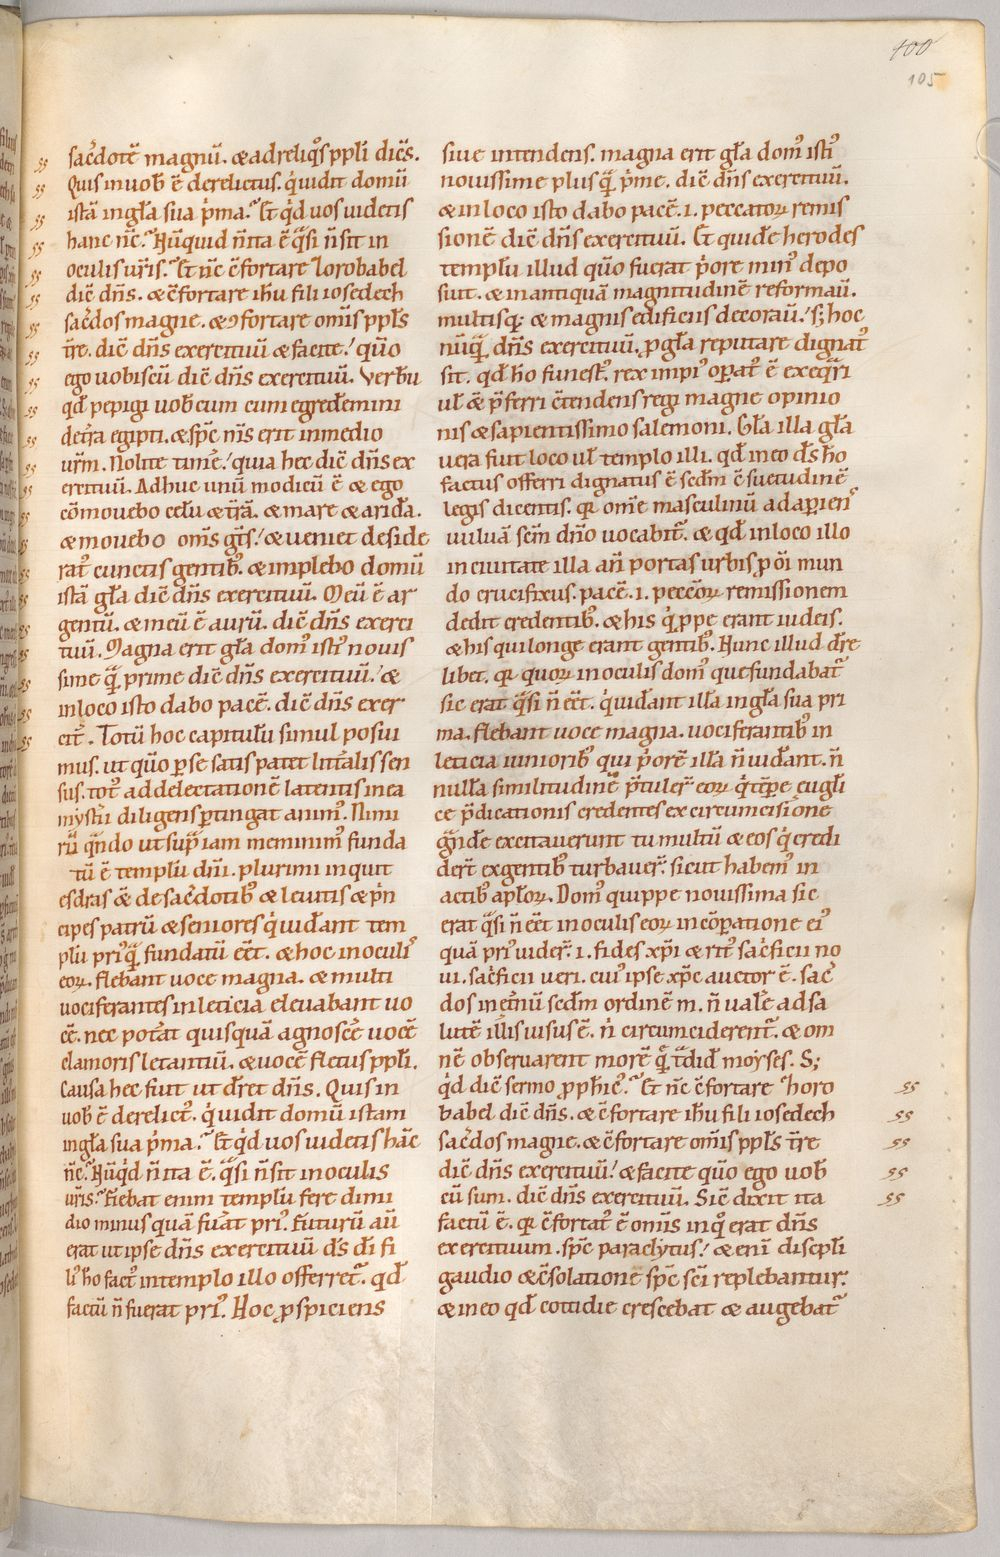 100
105
sac̄dotē magnū. & ad reliq̊s ppl̄i diēs.
Quis in uob̄ ē derelictus. q̇ uidit domū
istā in gl̄a sua p̍ma.? Et q̍d uos uidetis
hanc nc̄.? Nūquid n̄ ita ē q̄si n̄ sit in
oculis ur̄is.? Et nc̄ c̄fortare zorobabel
dic̄ dn̄s. & c̄fortare ih̄u fili iosedech
sac̄dos magne. & ꝯfortare om̄is ppl̄s
tr̄e. dic̄ dn̄s exercituū & facite.' quō
ego uobiscū dic̄ dn̄s exercituū. Verbū
qd̄ pepigi uob̄cum cum egrederemini
de tr̄a egipti. & sp̄c m̄s erit in medio
urm̄. Nolite timē.' quia hec dic̄ dn̄s ex
ercituū. Adhuc unū modicū ē & ego
cōmouebo celū & tr̄ā. & mare & aridā.
& mouebo om̄s gt̄s.' & ueniet deside
rat᷒ cunctis gentib᷒. & implebo domū
istā gl̄a dic̄ dn̄s exercituū. Meū ē ar
gentū. & meū ē aurū. dic̄ dn̄s exerci
tuū. Magna erit gl̄a dom᷒ isti᷒ nouis
sime q̄ꝫ prime dic̄ dn̄s exercituū.' &
in loco isto dabo pacē. dic̄ dn̄s exer
cit̄. Totū hoc capitulū simul posui
mus. ut quō ꝑ se satis patet litt̄alis sen
sus. tot᷒ ad delectationē latentis in ea
mysterii diligens ꝑtingat anim᷒. Nimi
rū qn̄do ut sup̄ iam meminim᷒ funda
tū ē templū dn̄i. plurimi inquit
esdras & de sac̄dotib᷒ & leuitis & p̍n
cipes patrū & seniores q̍ uidant tem
plū pri᷒ q̄ꝫ fundatū ēēt. & hoc in oculi᷒
eoꝝ. flebant uoce magna. & multi
uociferantes in leticia eleuabant uo
cē. nec potat̄ quisquā agnoscē uocē
clamoris letantiū. & uocē fletus ppl̄i.
Causa hec fuit ut dr̄et dn̄s. Quis in
uob̄ ē derelict᷒. q̍ uidit domū istam
in gl̄a sua p̍ma.? Et q̍d uos uidetis hāc
nc̄.? Nūq̍d n̄ ita ē. q̄si n̄ sit in oculis
ur̄is.? Fiebat enim templū fere dimi
dio minus quā fuat̄ pri᷒. Futurū aū
erat ut ipse dn̄s exercituū ds̄ dī fi
li᷒ hō fact᷒ in templo illo offerret᷒. qd̄
factū n̄ fuerat pri᷒. Hoc ꝓspiciens
siue intendens. magna erit gl̄a dom᷒ isti᷒
nouissime plus q̄ꝫ p̍me. dic̄ dn̄s exercituū.
& in loco isto dabo pacē. i. peccatoꝝ remis
sionē dic̄ dn̄s exercituū. Et quidē herodes
templū illud quō fuerat p̍ore min᷒ depo
suit. & in antiquā magnitudinē reformauit.
multisq; & magnis edificiis decorauit.' S; hoc
nūq̄ꝫ dn̄s exercituū. ꝓ gl̄a reputare dignat᷒
sit. qd̄ hō funest᷒. rex impi᷒ opat᷒ ē ex eq̄ri
ul̄ & p̄ferri c̄tendens regi magne opinio
nis & sapientissimo salemoni. Gl̄a illa gl̄a
uera fuit loco ul̄ templo illi. qd̄ in eo ds̄ hō
factus offerri dignatus ē scdm̄ c̄suetudinē
legis dicentis. qꝛ om̄e masculinū adaꝑien᷒
uuluā scm̄ dn̄o uocabit᷒. & qd̄ in loco illo
in ciuitate illa añ portas urbis ꝓ oi̅ mun
do crucifixus. pacē. i. peccoꝝ̄ remissionem
dedit credentib᷒. & his q̍ ꝓpe erant iudeis.
& his qui longe erant gentib᷒. Nunc illud dr̄e
libet. qꝛ quoꝝ in oculis dom᷒ que fundabat᷒
sic erat q̄si n̄ ēēt. q̍ uidant illā in gl̄a sua pri
ma. flebant uoce magna. uociferantib᷒ in
leticia iuniorib᷒ qui p̍orē illā n̄ uidant. n̄
nullā similitudinē p̄tuler̄ eoꝝ q̍ tꝑe eugl̄i
ce p̄dicationis credentes ex circumcisione
gn̄de excitauerunt tumultū & eos q̍ credi
dert̄ ex gentib᷒ turbauer̄. sicut habem᷒ in
actib᷒ apl̄oꝝ. Dom᷒ quippe nouissima sic
erat q̄si n̄ ēēt in oculis eoꝝ in cōpatione ei᷒
quā pri᷒ uider̄. i. fides xp̄i & rit᷒ sac̄ficii no
ui. sac̄ficii ueri. cui᷒ ipse xp̄c auctor ē. sac̄
dos in et̄nū scdm̄ ordinē m. n̄ ualē ad sa
lutē illis uisus ē. nı̍ circumciderent᷒. & om
nē obseruarent morē q̄ t̄didit̄ moyses. S;
q̍d dic̄ sermo ꝓph̄ic᷒.? Et nc̄ c̄fortare zoro
babel dic̄ dn̄s. & c̄fortare ih̄u fili iosedech
sac̄dos magne. & c̄fortare om̄is ppl̄s tr̄e
dic̄ dn̄s exercituū.' & facite quō ego uob̄
cū sum. dic̄ dn̄s exercituū. Sic̄ dixit ita
factū ē. qꝛ c̄fortat᷒ ē om̄is in q᷒ erat dn̄s
exercituum. sp̄c paraclytus.' & enī discipl̄i
gaudio & c̄solatione sp̄c sc̄i replebantur.
& in eo qd̄ cottidie crescebat & augebat᷒